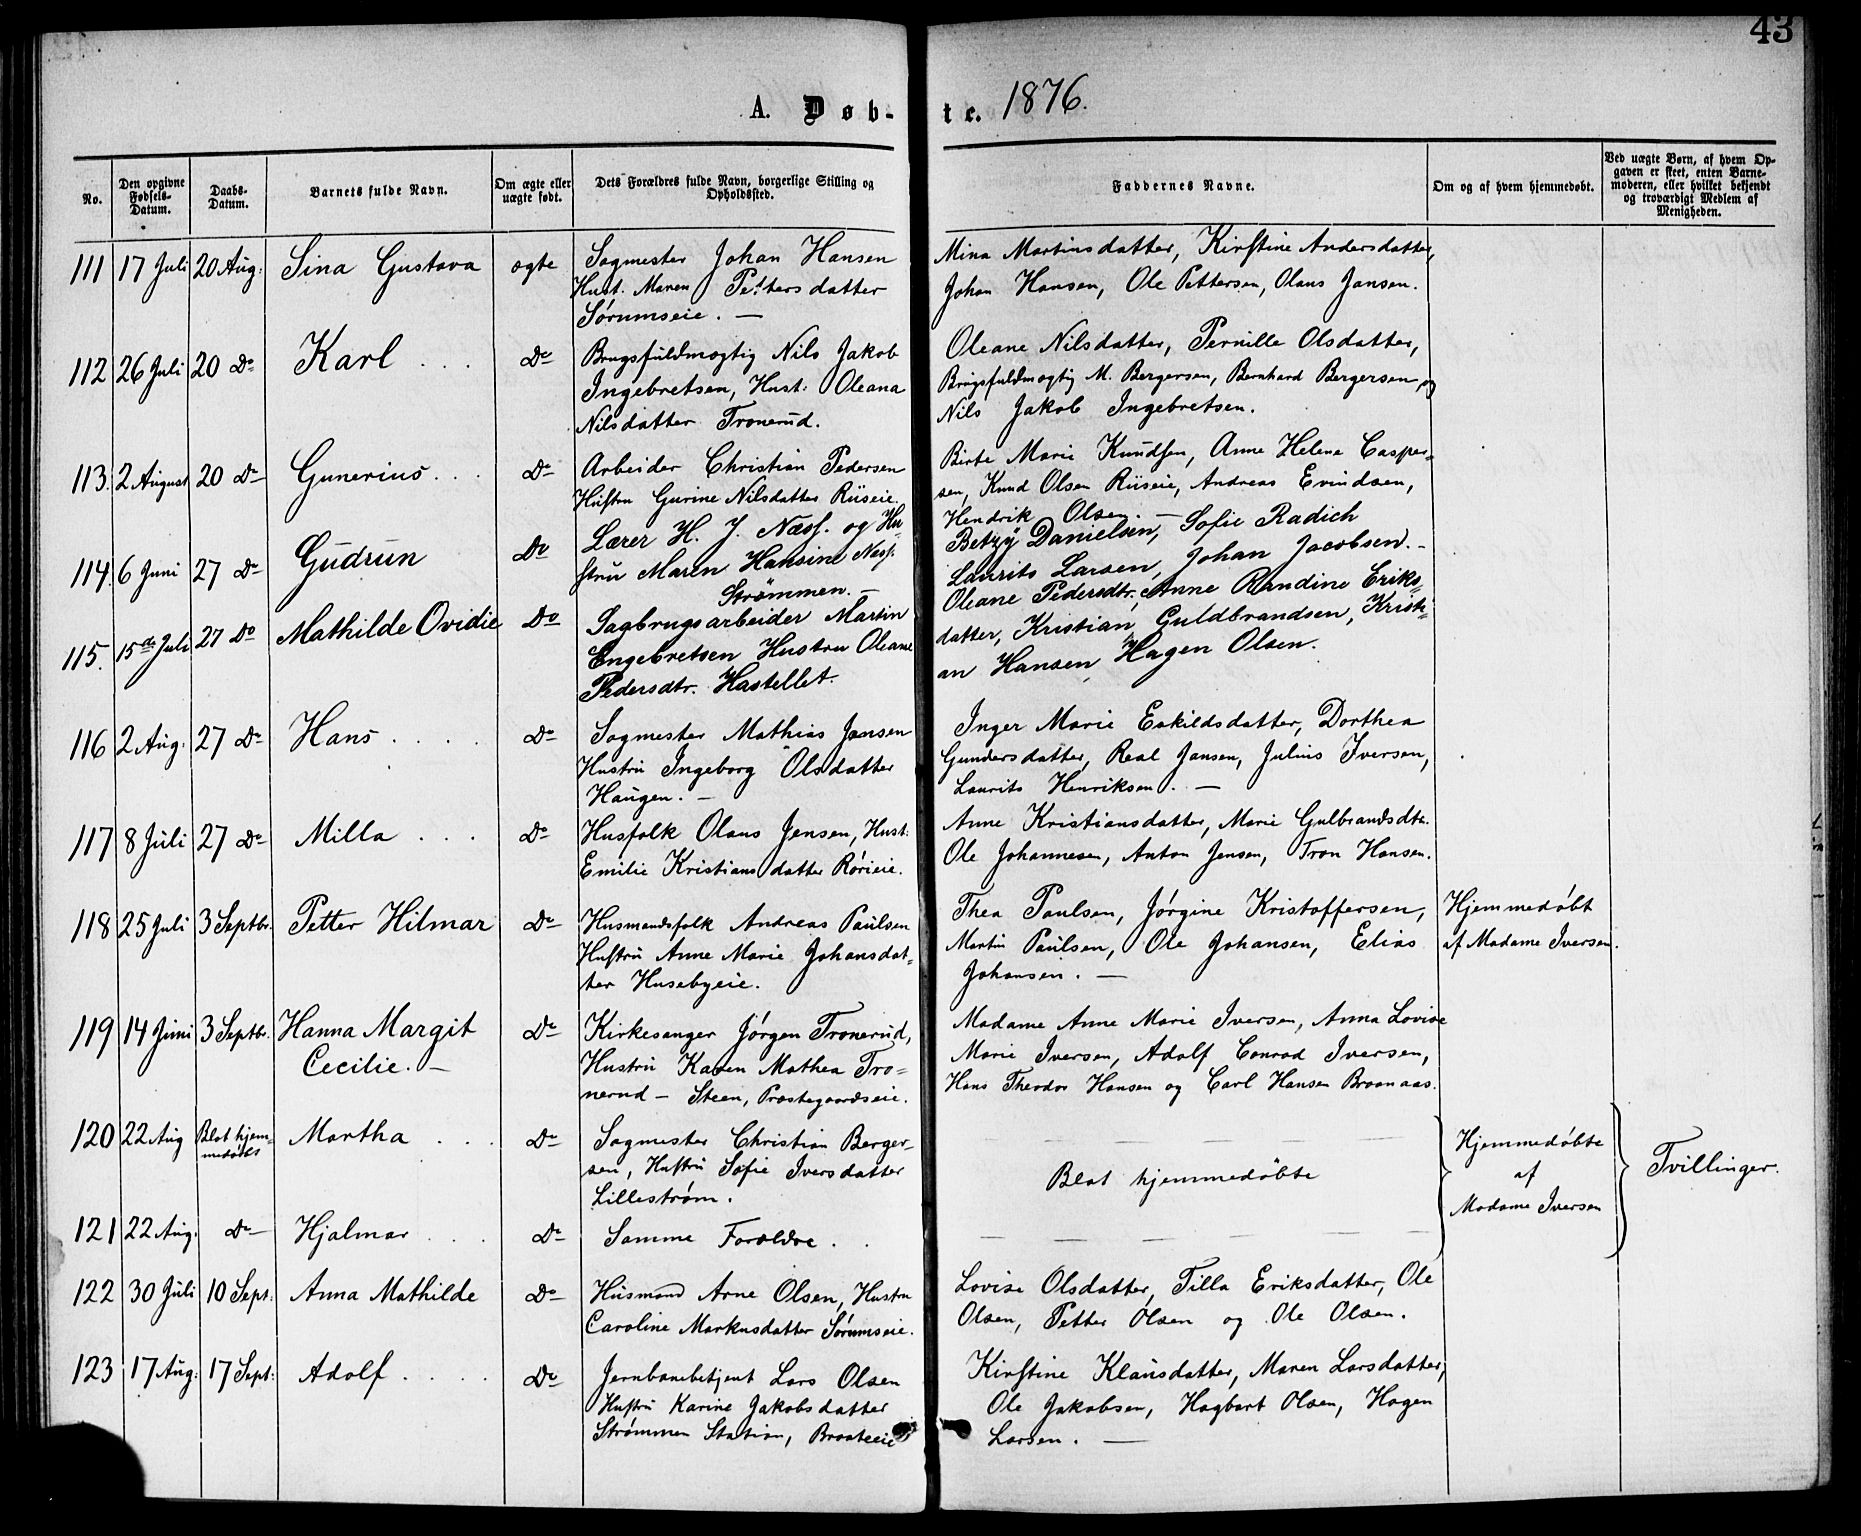 43
A. Døb-
te. 1876.
No.
Den opgivne Fødsels-Datum.
Daabs-Datum.
Barnets fulde Navn.
Om ægte eller uægte født.
Dets Forældres fulde Navn, borgerlige Stilling og Opholdssted.
Faddernes Navne.
Om og af hvem hjemmedøbt.
Ved uægte Børn, af hvem Opgaven er skeet, enten Barnemoderen, eller hvilket bekjendt og troværdigt Medlem af Menigheden.
111 17 Juli 20 Aug: Sina Gustava ægte
Sagmester Johan Hansen
Hust. Maren Pettersdatter
Sørumseie. —
Mina Martinsdatter, Kirstine Andersdatter,
Johan Hansen, Ole Pettersen, Olaus Jansen.
112 26 Juli 20 Do Karl . . . Do
Brugsfuldmægtig Nils Jakob
Ingebretsen, Hust: Oleana
Nilsdatter Tronerud.
Oleane Nilsdatter, Pernille Olsdatter,
Brugsfuldmægtig M. Bergersen, Bernhard Bergersen, og
Nils Jakob Ingebretsen.
113. 2 August 20 Do Gunerius . . . Do
Arbeider Christian Pedersen
Hustru Gurine Nilsdatter Riiseie.
Birte Marie Knudsen, Anne Helene Casper=
sen, Knud Olsen Riiseie, Andreas Evindsen,
Hendrik Olsen. —
114. 6 Juni 27 Do Gudrun Do
Lærer H. J. Næss. og Hu-
stru Maren Hansine Næss.
Strømmen. —
Betzy Danielsen, Sofie Radich
Laurits Larsen, Johan Jacobsen. -
115. 15de Juli 27 Do Mathilde Ovidie Do
Sagbrugsarbeider Martin
Engebretsen Hustru Oleane
Pedersdtr. Hastellet.
Oleane Pedersdtr, Anne Randine Eriks=
datter, Kristian Guldbrandsen, Kristi-
an Hansen, Hagen Olsen.
116 2 Aug: 27 Do Hans . . . . Do
Sagmester Mathias Jansen
Hustru Ingeborg Olsdatter
Haugen. —
Inger Marie Eskildsdatter, Dorthea
Gundersdatter, Real Jansen, Julius Iversen,
Laurits Henriksen. —
117 8 Juli 27 Do Milla . . . Do
Husfolk Olaus Jensen, Hust:
Emilie Kristiansdatter Rørieie.
Anne Kristiansdatter, Marie Gulbrandsdtr.
Ole Johannesen, Anton Jensen, Tron Hansen.
118 25 Juli 3 Septbr. Petter Hilmar Do
Husmandsfolk Andreas Paulsen
Hustru Anne Marie Johansdat=
ter Husebyeie.
Thea Paulsen, Jørgine Kristoffersen,
Martin Paulsen, Ole Johansen, Elias
Johansen. —
Hjemmedøbt
af Madame Iversen.
119 14 Juni 3 Septbr. Hanna Margit
Cecilie. — Do
Kirkesanger Jørgen Tronerud,
Hustru Karen Mathea Tro=
nerud — Steen, Præstegaardseie.
Madame Anne Marie Iversen, Anna Lovise
Marie Iversen, Adolf Conrad Iversen,
Hans Theodor Hansen og Carl Hansen Braanaas.
120 22 Aug Blot hjem=
medøbt Martha . . . Do
Sagmester Christian Berger-
sen, Hustru Sofie Iversdatter
Lillestrøm.
Blot hjemmedøbte
Hjemmedøbte
af
Madame Iversen
Tvillinger.
121 22 Aug: Do Hjalmar . . . Do
Samme Forældre . .
122 30 Juli 10 Sept: Anna Mathilde Do
Husmand Arne Olsen, Hustru
Caroline Markusdatter Sørumseie.
Lovise Olsdatter, Tilla Eriksdatter, Ole
Olsen, Petter Olsen og Ole Olsen.
123 17 Aug: 17 Sept: Adolf . . . . Do
Jernbanebetjent Lars Olsen
Hustru Karine Jakobsdatter
Strømmen Station, Braateeie
Kirstine Klausdatter, Maren Larsdatter,
Ole Jakobsen, Hagbart Olsen, Hagen
Larsen. —